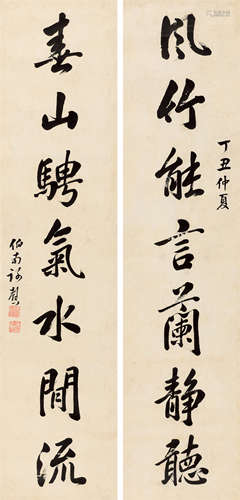 風竹能言蘭靜聽
丁丑仲夏
春山騁氣水閒流
伯南